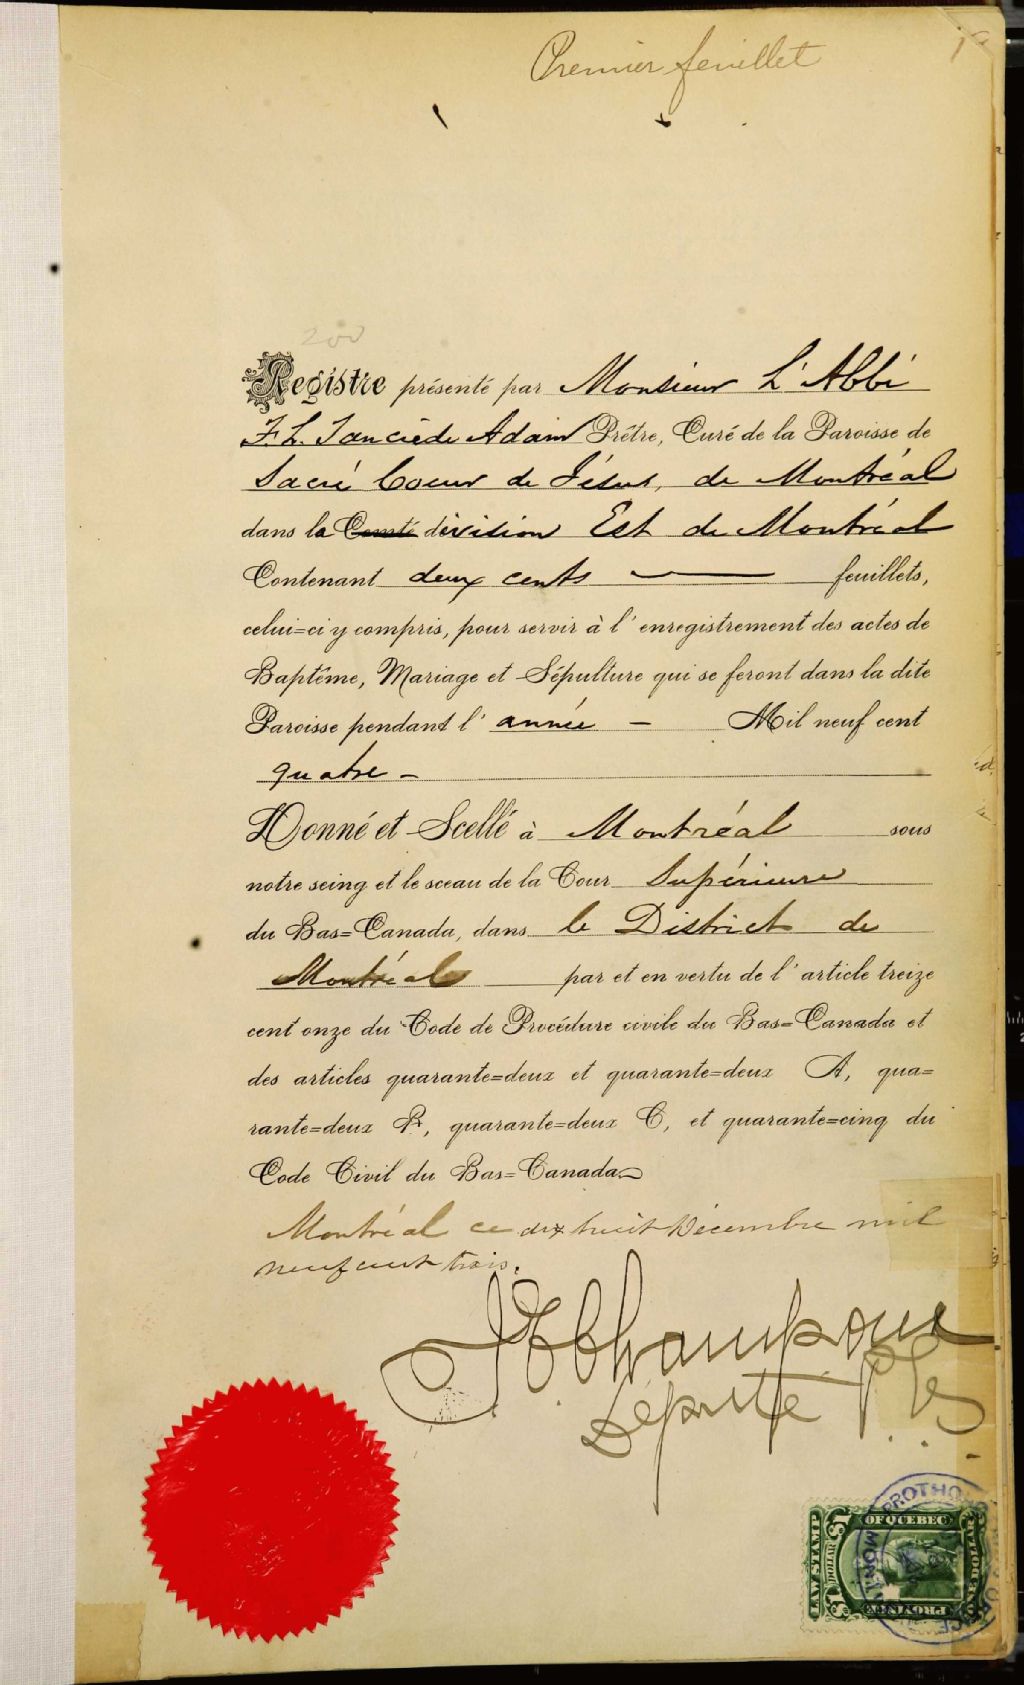 Premier feuillet
200
Registre présenté par Monsieur L'Abbé
F. L. Tancrède Adam Prêtre, Curé de la Paroisse de
Sacré Coeur de Jésus, de Montréal
dans la Comté division Est de Montréal
Contenant deux cents feuillets,
celui=ci y compris, pour servir à l'enregistrement des actes de
Baptême, Mariage et Sépulture qui se feront dans la dite
Paroisse pendant l'année — Mil neuf cent
quatre —
Donné et Scellé à Montréal sous
notre seing et le sceau de la Cour Supérieure
du Bas=Canada, dans le District de
Montréal par et en vertu de l'article treize
cent onze du Code de Procédure civile du Bas=Canada et
des articles quarante=deux et quarante=deux A, qua=
rante=deux B, quarante=deux C, et quarante=cinq du
Code Civil du Bas=Canada
Montréal ce dix huit Décembre mil
neuf cent trois.
Champoux
Député P
LAW STAMP
OF QUEBEC
$1
DOLLAR
$1
PROVINCE
PROTHO
MONT